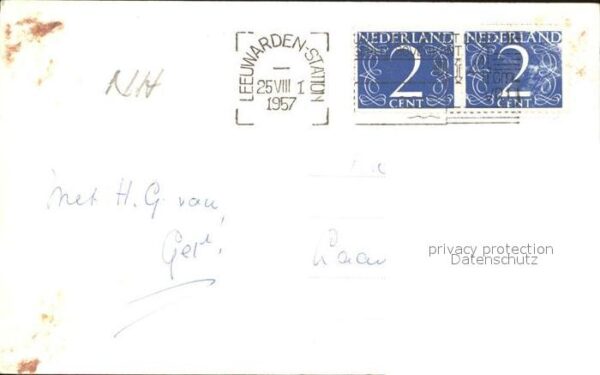 NEDERLAND NEDERLAND
2 2
CENT CENT
LEEUWARDEN-STATION
25 VIII 1
1957
NH
Met H. G. van
Laan
privacy protection
Datenschutz